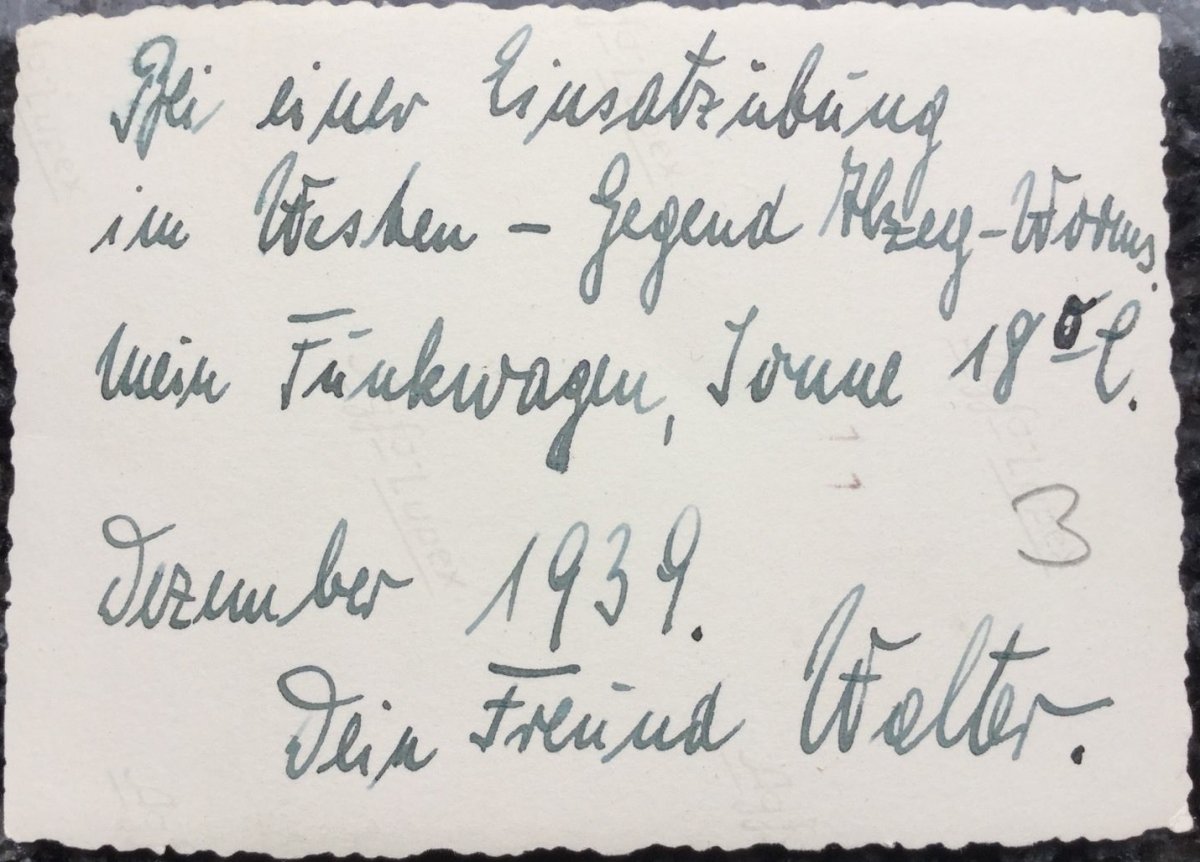 Bei einer Einsatzübung
im Westen – Gegend Alzey-Worms.
Mein Funkwagen, Sonne 18° C.
Dezember 1939.
3
Dein Freund Walter.